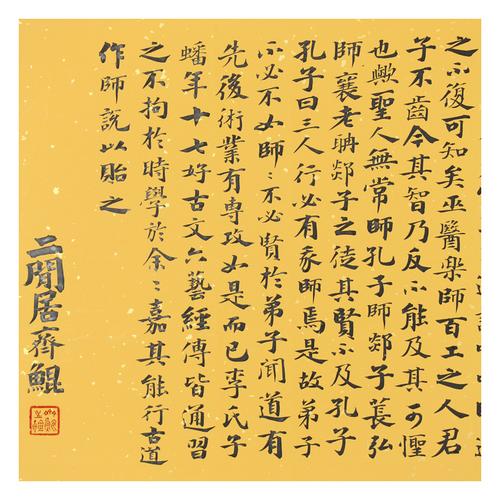 之不復可知矣巫醫樂師百工之人君
子不齒今其智乃反不能及其可恠
也歟聖人無常師孔子師郯子萇弘
師襄老聃郯子之徒其賢不及孔子
孔子曰三人行必有我師焉是故弟子
不必不如師〻不必賢於弟子聞道有
先後術業有專攻如是而已李氏子
蟠年十七好古文六藝經傳皆通習
之不拘於時學於余〻嘉其能行古道
作師說以貽之
二閒居齊鯤